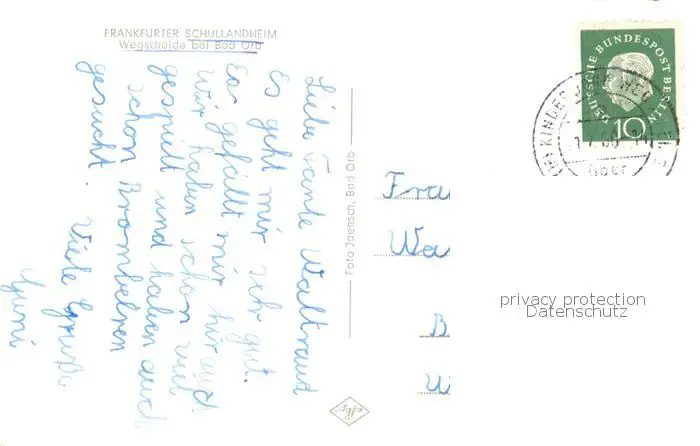 FRANKFURTER SCHULLANDHEIM
Wegscheide bei Bad Orb
Liebe Tante Waltraud
Es geht mir sehr gut.
Es gefällt mir hir auch
Wir haben schon viel
gespielt und haben auch
schon Brombehren
gesucht. Viele Grüße
Foto Jaensch, Bad Orb
Agfa
DEUTSCHE BUNDESPOST BERLIN
10
über
Frau
Wa
B
W
privacy protection
Datenschutz